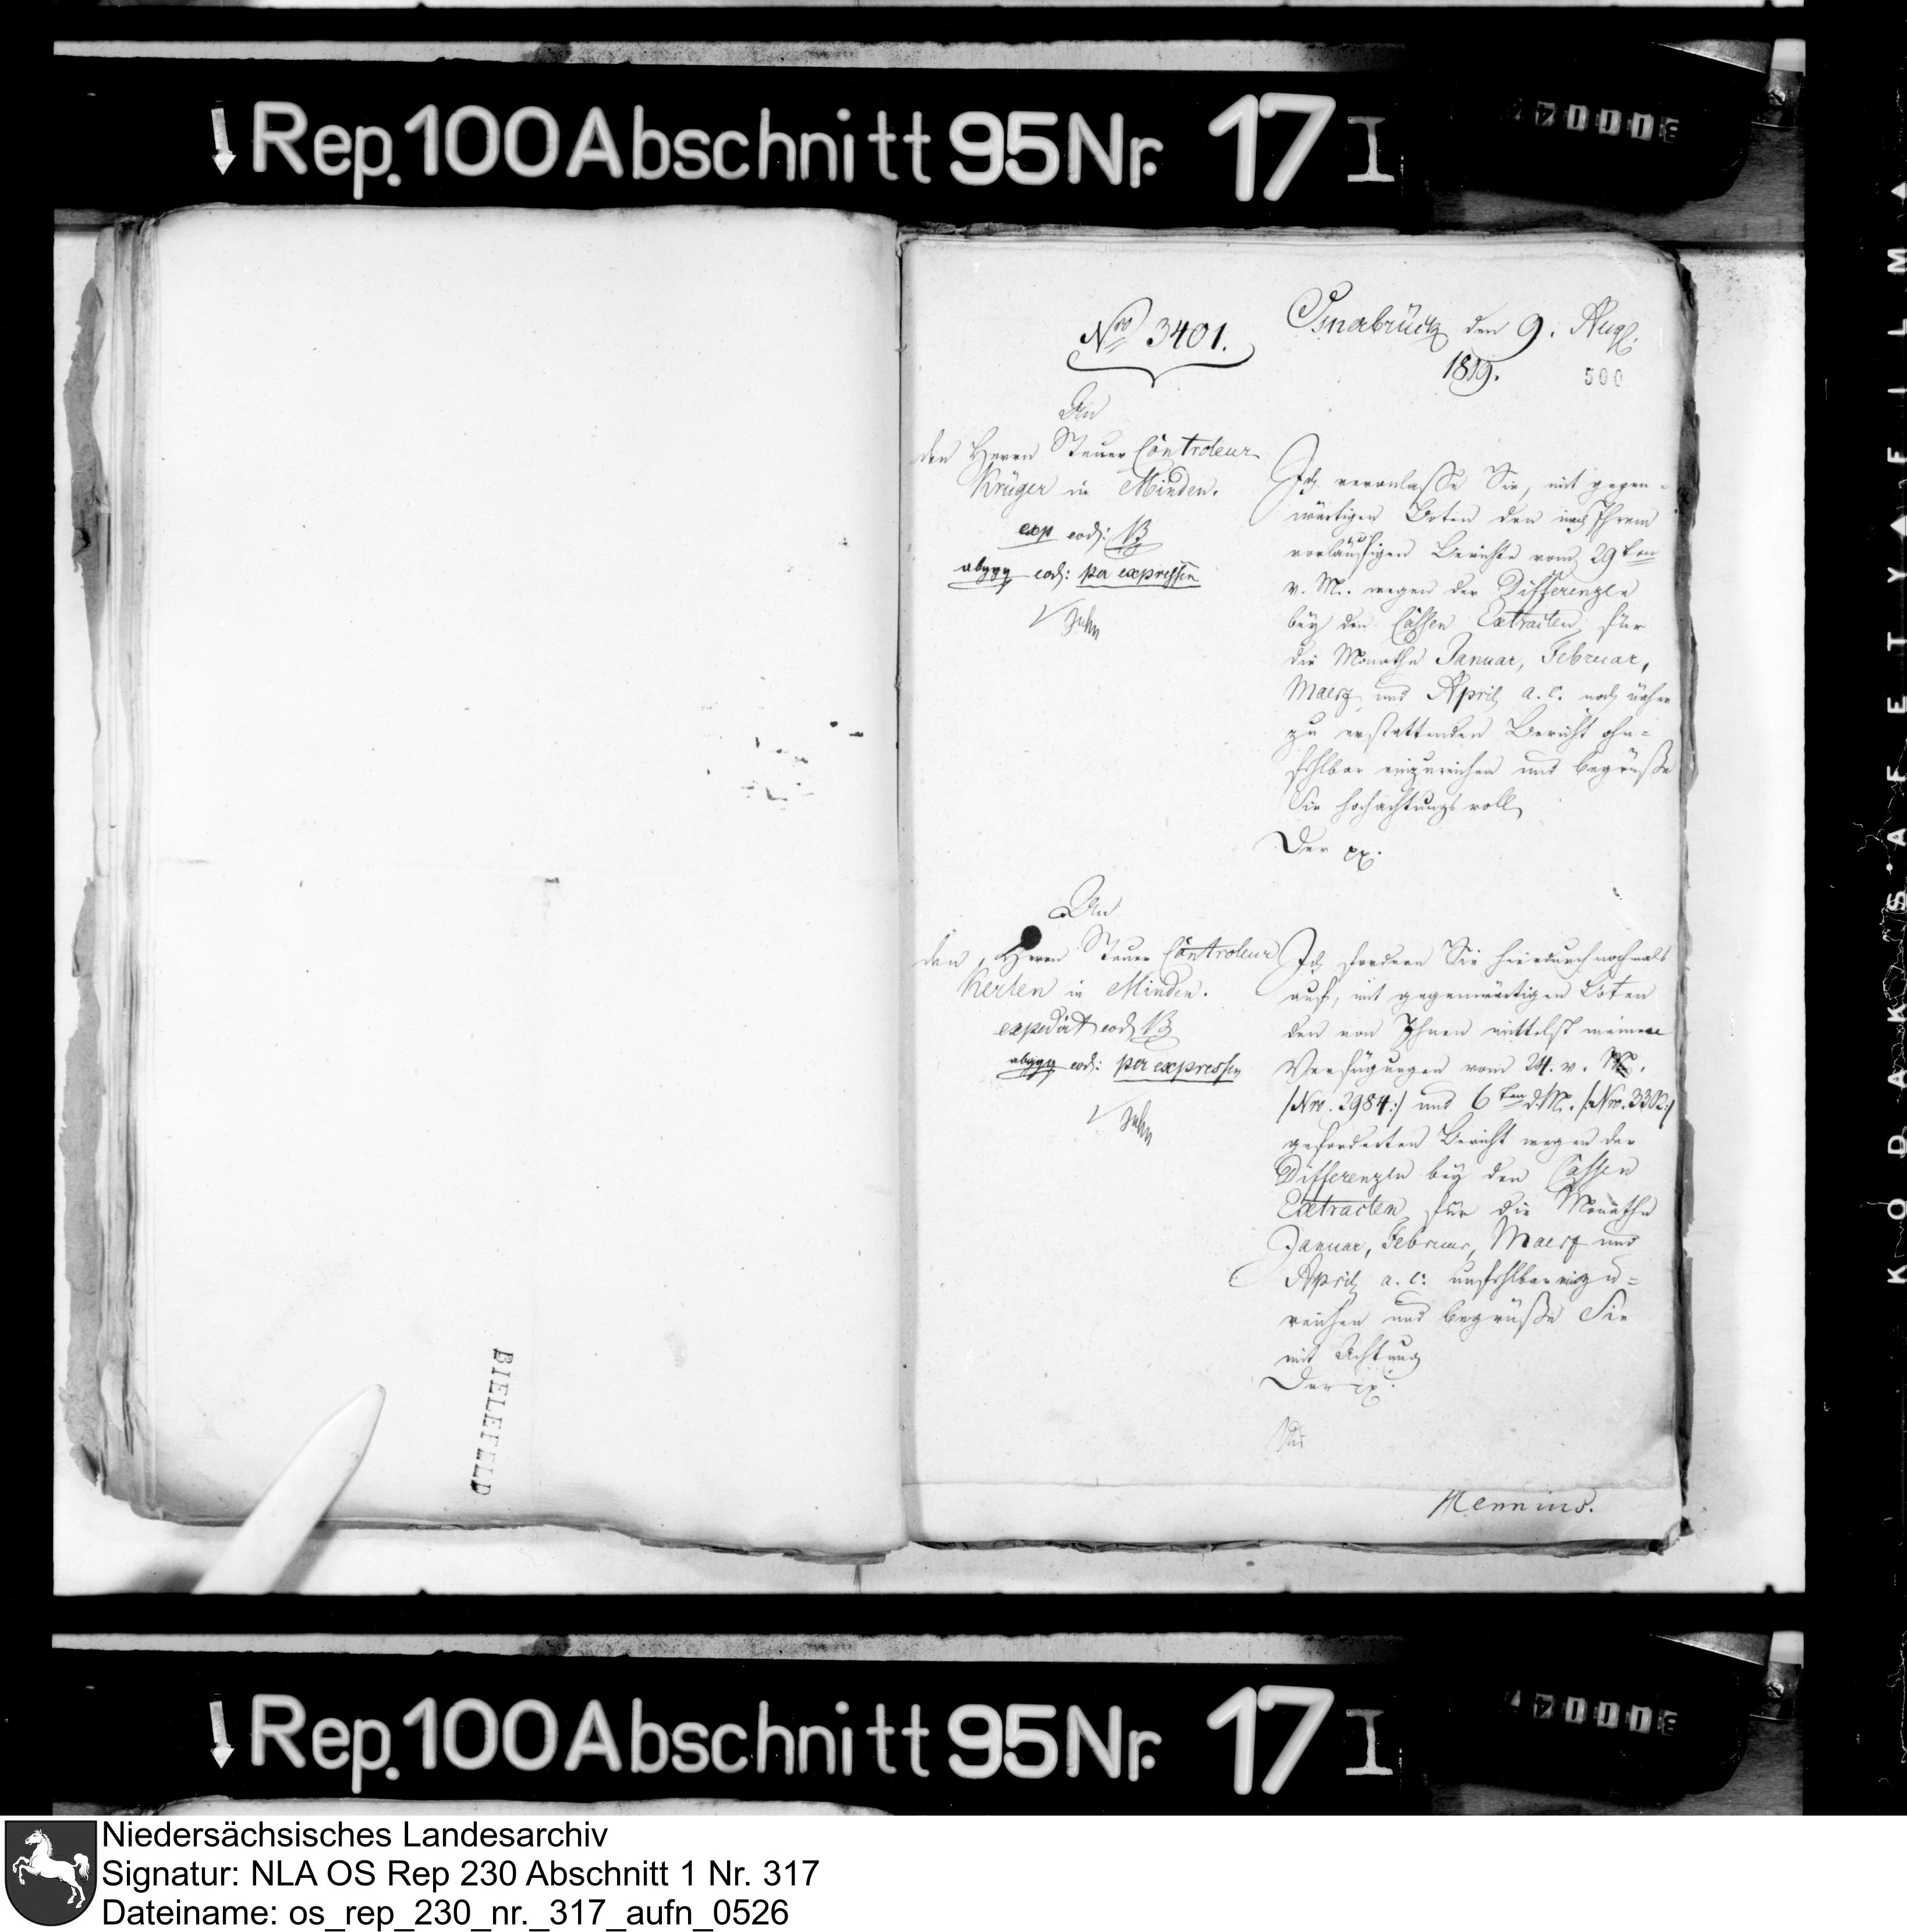 Rep. 100 Abschnitt 95 Nr. 17 I
Nro 3401.
Osnabrück den 9. Aug.
1819.
500
An
den Herrn Steuer Controleur
Krüger in Minden.
exp eod:
abggg eod: per expressen
Jahn
Ich veranlasse Sie, mit gegen-
wärtigen Boten den nach Ihrem
vorläufigen Berichte vom 29ten
v. M. wegen der Differenzen
bey den Cassen Extracten für
die Monathe Januar, Februar,
Maerz und April a. c. noch näher
zu erstattenden Bericht ohn-
fehlbar einzureichen und begrüße
Sie hochachtungsvoll
Der pp.
An
den Herrn Steuer Controleur
Kerten in Minden.
expedirt eod
abggg eod: per expressen
Jahn
Ich fordere Sie hierdurch nochmals
auf, mit gegenwärtigen Boten
den von Ihnen mittelst meiner
Verfügungen vom 24. v. M.
/:Nro. 2984:/ und 6ten d. M. /:Nro. 3302:/
geforderten Bericht wegen der
Differenzen bey den Cassen
Extracten für die Monathe
Januar, Februar, Maerz und
April a. c. unfehlbar einzu-
reichen und begrüße Sie
mit Achtung
Der pp.
BIELEFELD
Rep. 100 Abschnitt 95 Nr. 17 I
KODAK · SAFETY FILM
Niedersächsisches Landesarchiv
Signatur: NLA OS Rep 230 Abschnitt 1 Nr. 317
Dateiname: os_rep_230_nr._317_aufn_0526